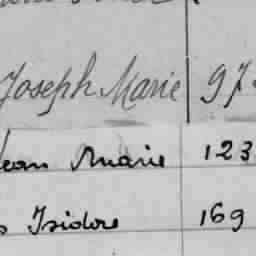 Joseph Marie 97
Jean Marie 123
Isidore 169